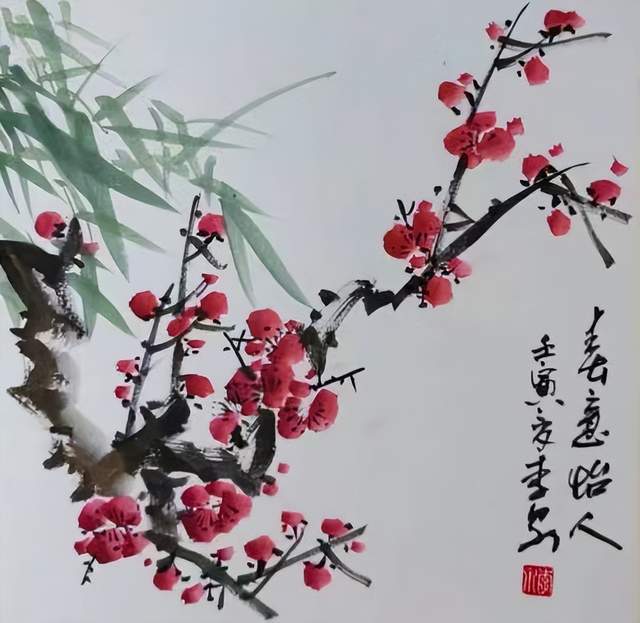 春意怡人
壬寅 李